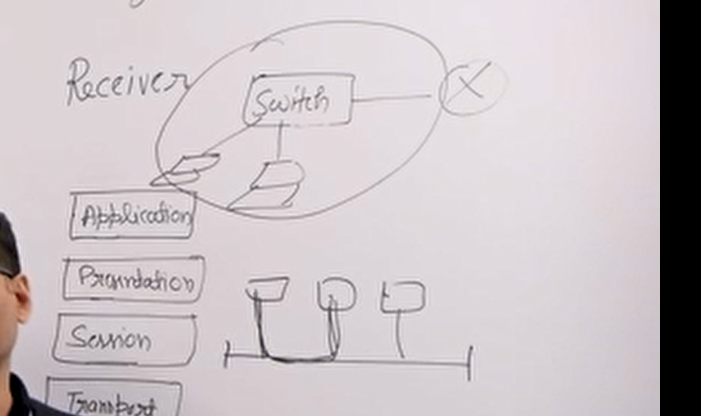 Receiver
Switch
Application
Presentation
Session
Transport